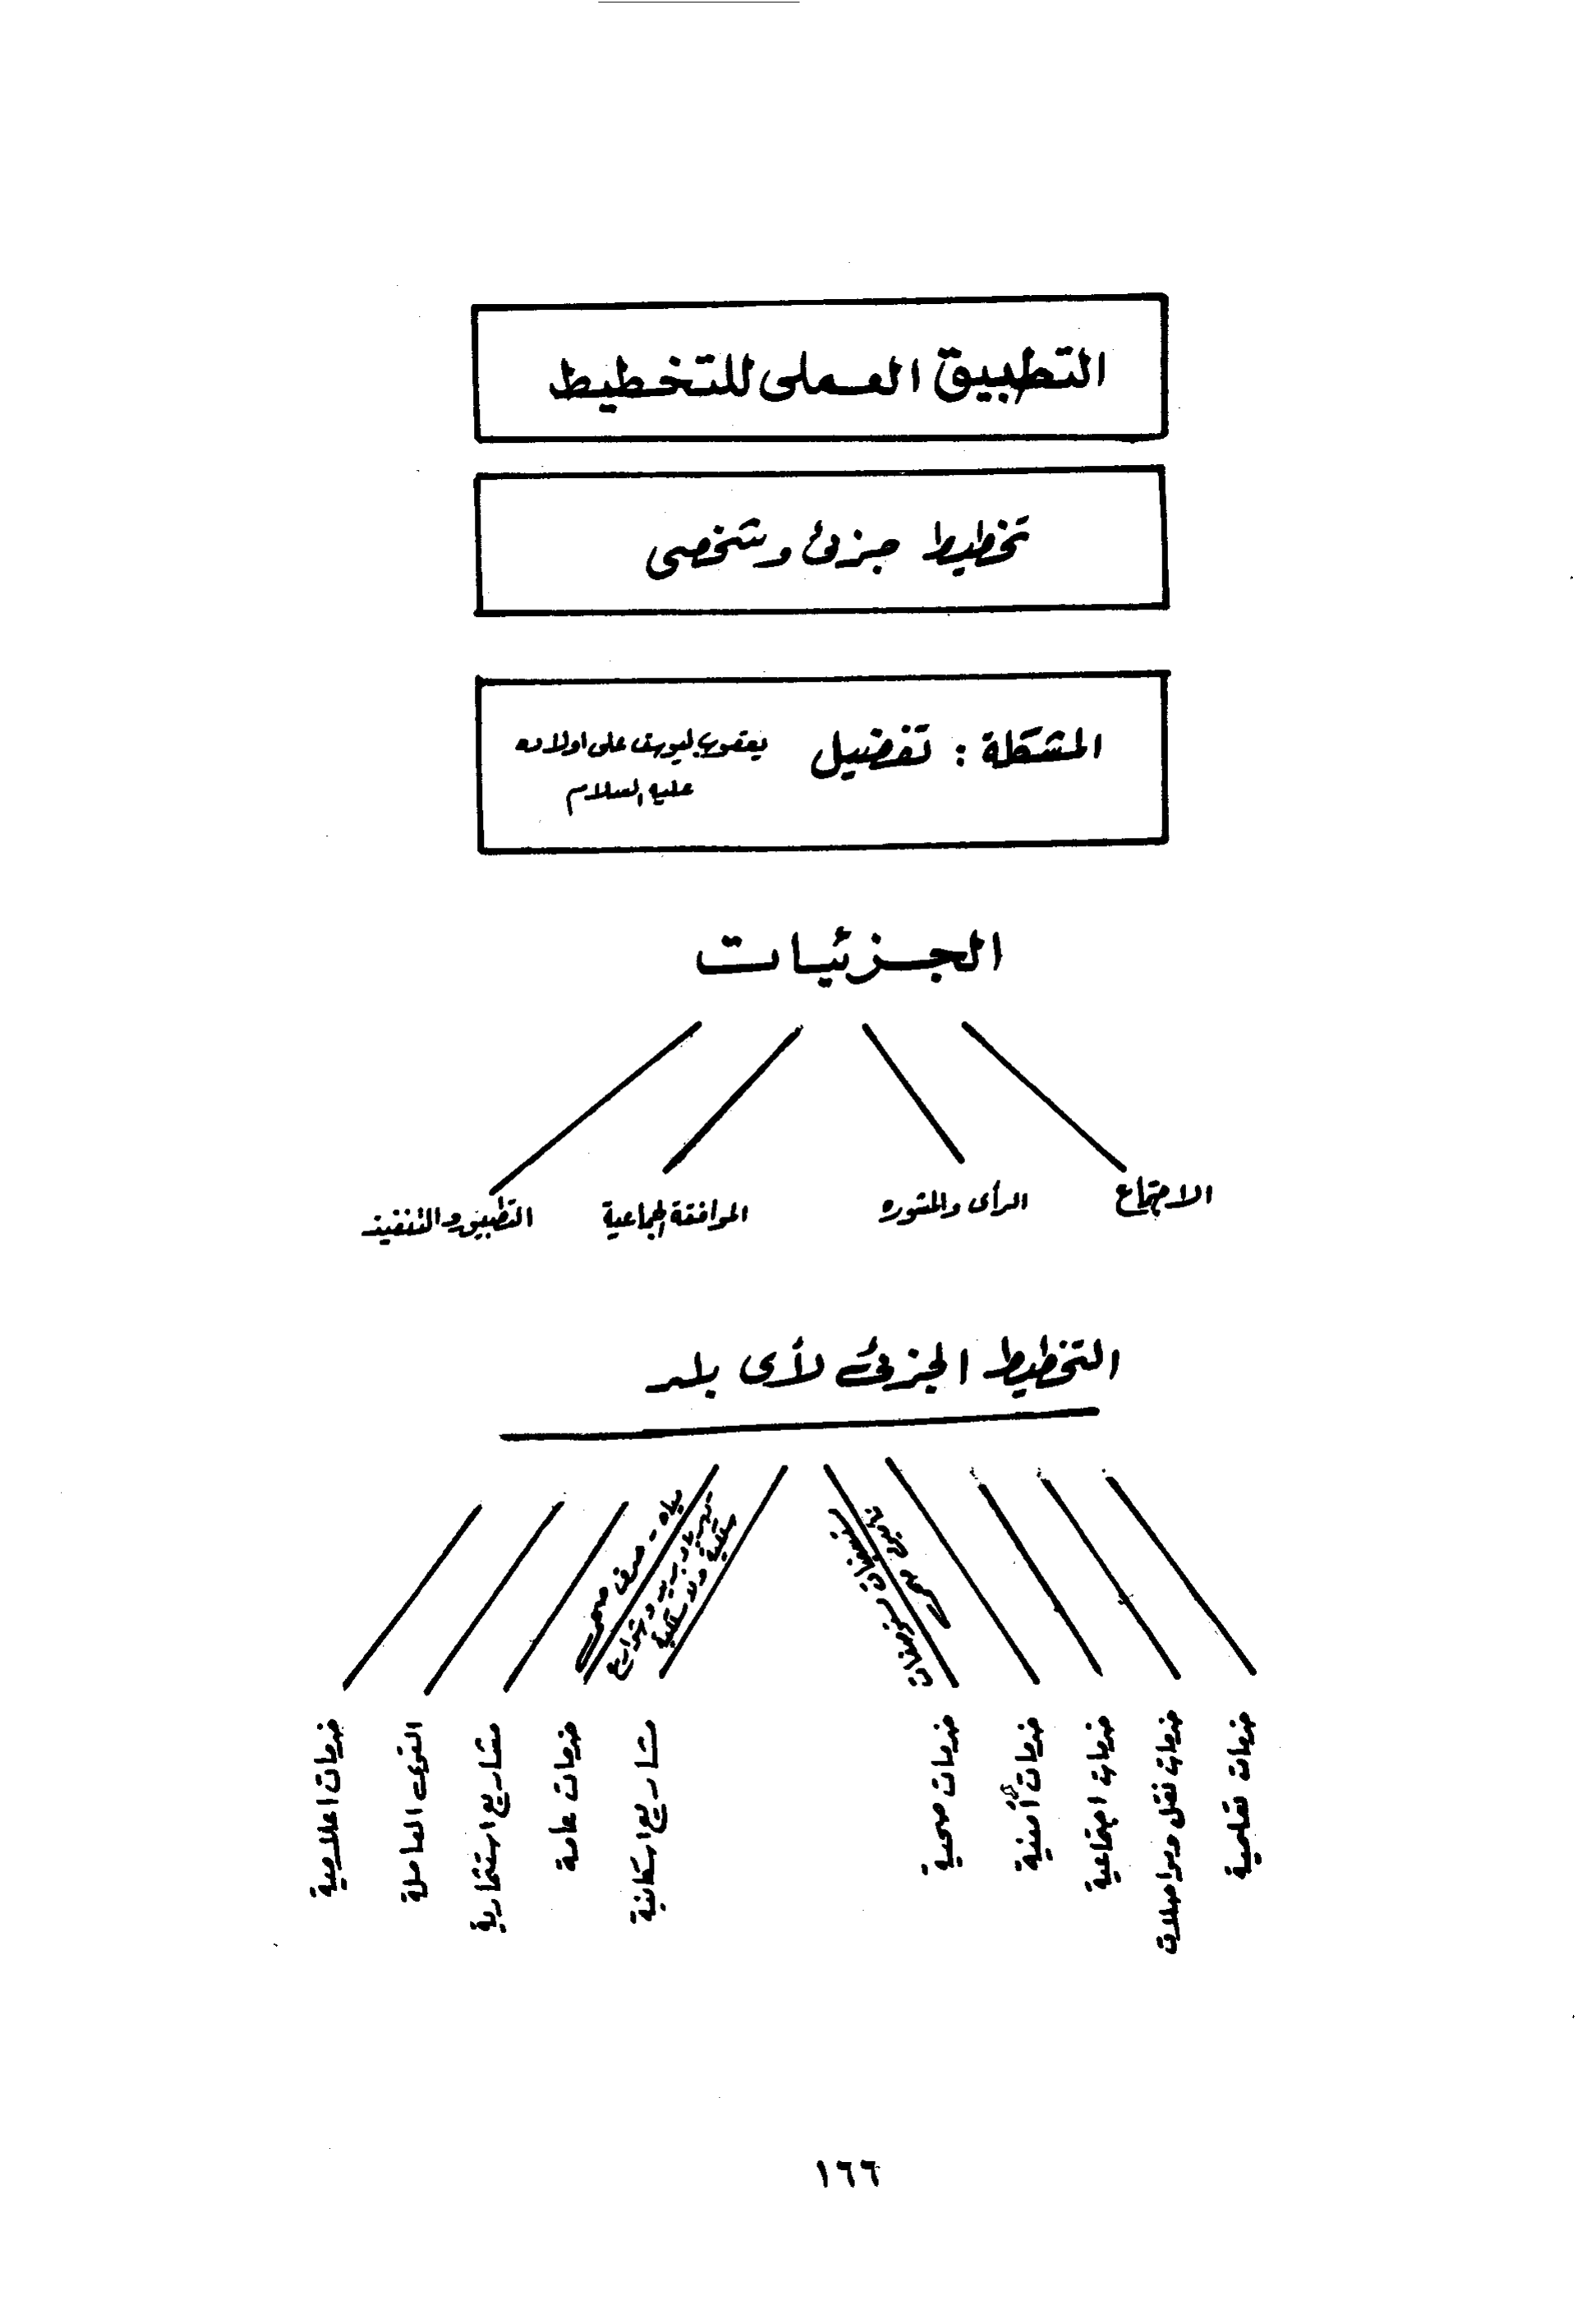 التطبيق العملى للتخطيط
تخطيط جزئ وشخصى
المشكلة : تفضيل يعقوب ليوسف على اولاده
عليه السلام
الجزئيات
الاجتماع
الرأى والمشوره
الموافقة الجماعية
التطبيق والتنفيذ
التخطيط الجزئ لأى بلد
مياه - صرف صحى
خدمات تعليمية
خدمات نقل ومواصلات
خدمات اجتماعية
خدمات أمنية
خدمات صحية
مشاريع اسكانية
خدمات عامة
مشاريع استثمارية
القوى العاملة
خدمات اعلامية
١٦٦